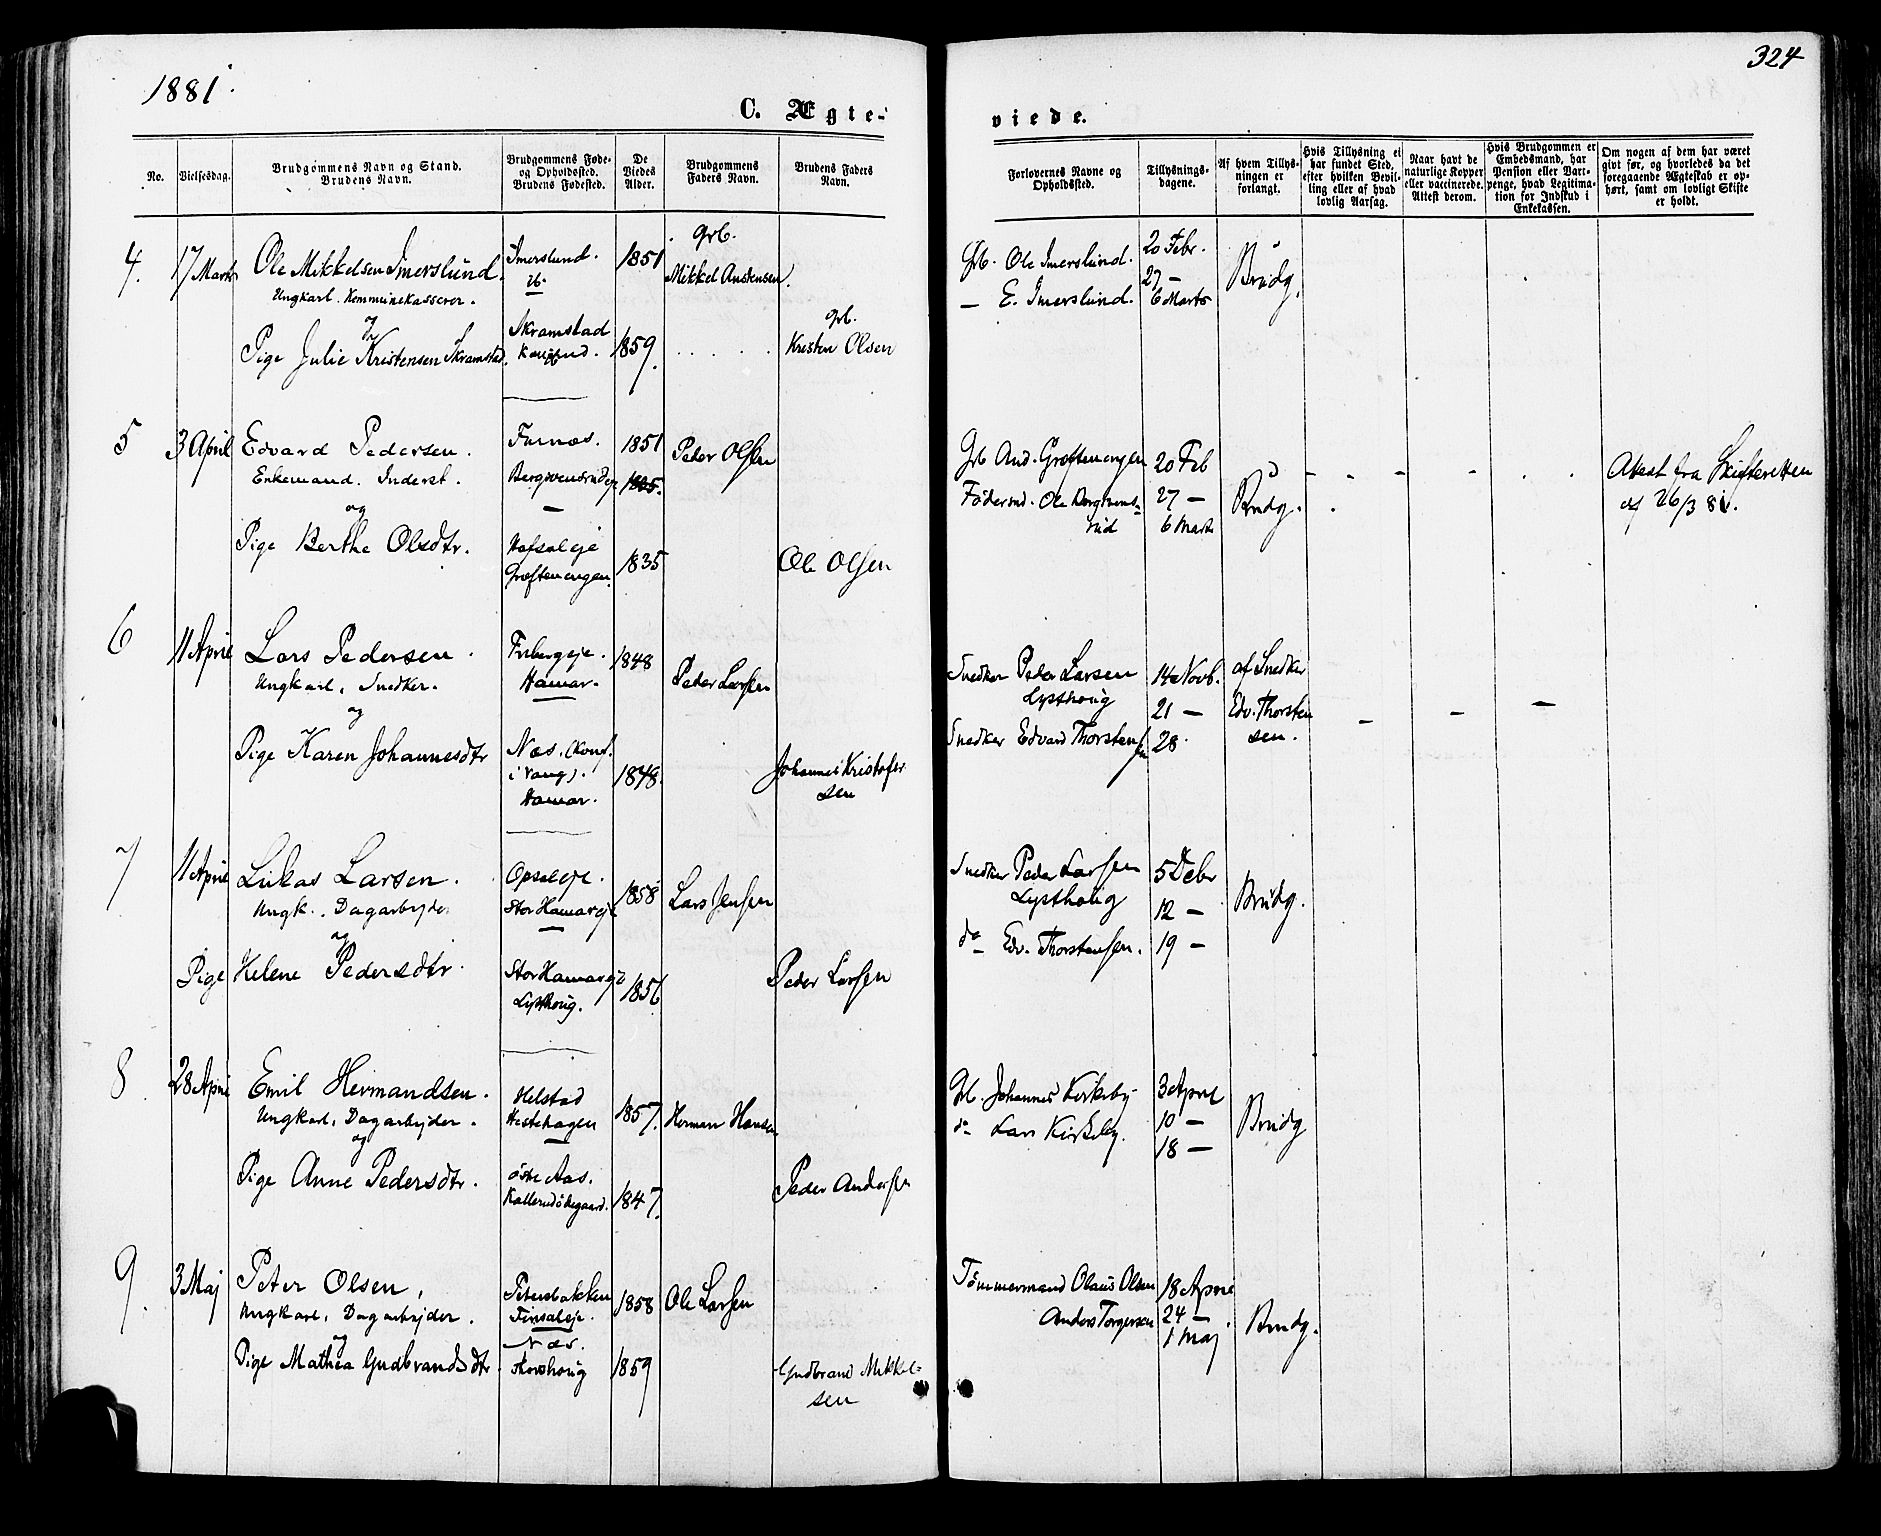 1881.
324
C. Ægte-
viede.
No.
Vielsesdag.
Brudgommens Navn og Stand.
Brudens Navn.
Brudgommens Føde-
og Opholdssted.
Brudens Fødested.
De
Viedes
Alder.
Brudgommens
Faders Navn.
Brudens Faders
Navn.
Forlovernes Navne og
Opholdssted.
Tillysnings-
dagene.
Af hvem Tillys-
ningen er
forlangt.
Hvis Tillysning ei
har fundet Sted,
efter hvilken Bevil-
ling eller af hvad
lovlig Aarsag.
Naar havt de
naturlige Kopper
eller vaccinerede.
Attest derom.
Hvis Brudgommen er
Embedsmand, har
Pension eller Vart-
penge, hvad Legitima-
tion for Indskud i
Enkekassen.
Om nogen af dem har været
givt før, og hvorledes da det
foregaaende Ægteskab er op-
hørt, samt om lovligt Skifte
er holdt.
4.
17 Marts
Ole Mikkelsen Imerslund.
Ungkarl. Kommunekasserer.
og
Pige Julie Kristensen Skramstad.
Imerslund.
ib.
Skramstad
1851
1859.
Grb.
Mikkel Austensen.
Grb.
Kristen Olsen
Grb. Ole Imerslund.
— E. Imerslund.
20 Febr.
27 —
6 Marts
Brudg.
5
3 April
Edvard Pedersen.
Enkemand. Inderst.
og
Pige Berthe Olsdtr.
Furnæs.
Bergsvendsrudeje
Hafsaleje
Grøftenengen.
1851
1835
Peder Olsen
Ole Olsen
Grb And. Grøftenengen
Föderaad. Ole Bergsvends-
rud
20 Feb
27 —
6 Marts
Brudg.
Attest fra Skifteretten
af 26/3 81.
6
11 April
Lars Pedersen.
Ungkarl, Snedker.
og
Pige Karen Johannesdtr
Hamar.
Næs. (Konf.
i Vang).
Hamar.
1848
1848.
Peder Larsen
Johannes Kristofer
sen
Snedker Peder Larsen
Lysthoug
Snedker Edvard Thorstensen
14 Novb.
21 —
28.
af Snedker
Edv. Thorsten
sen.
7
11 April
Lukas Larsen.
Ungk., Dagarbejder
og
Pige Helene Pedersdtr.
Opsaleje.
Stor Hamareje
Stor Hamareje
Lysthoug.
1858
1856
Lars Jensen
Peder Larsen
Snedker Peder Larsen
Lysthoug
do Edv. Thorstensen.
5 Debr
12 —
19 —
Brudg.
8.
28 April
Emil Hermandsen.
Ungkarl, Dagarbejder.
og
Pige Anne Pedersdtr.
Helstad
Hestehagen
östre Aas.
1857.
1847.
Herman Hansen
Peder Andersen
Grb. Johannes Kirkeby
do Lars Kirkeby.
3 April
10 —
18 —
Brudg
9.
3 Maj
Peter Olsen,
Ungkarl, Dagarbejder.
og
Pige Mathea Gudbrandsdtr.
Petersbakken
Finsaleje.
Næs.
Skovhoug
1858
1859
Ole Larsen
Gudbrand Mikkel-
sen
Tömmermand Olaus Olsen
Anders Torgersen
18 April
24 —
1 Maj
Brudg.